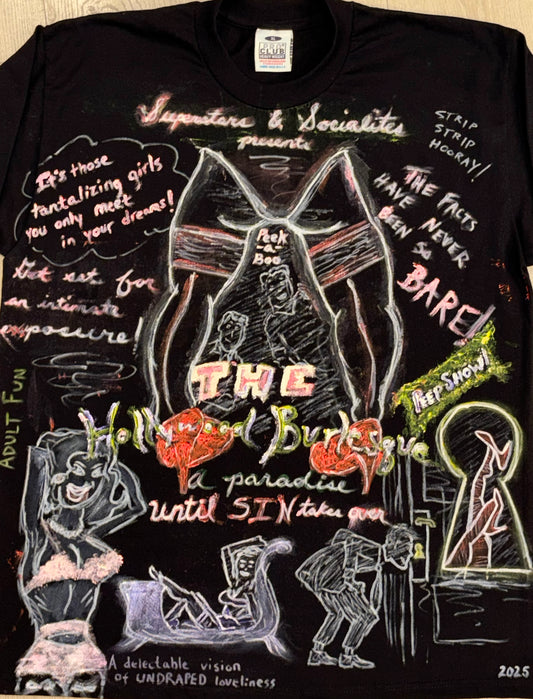 PRO CLUB
Superstars & Socialites
presents
STRIP
STRIP
HOORAY!
It's those
tantalizing girls
you only meet
in your dreams!
THE FACTS
HAVE NEVER
BEEN SO
BARE!
Peek
-a-
Boo
Get set for
an intimate
exposure!
THE
PEEP SHOW!
ADULT FUN
Hollywood Burlesque
a paradise
until SIN takes over
A delectable vision
of UNDRAPED loveliness
2025